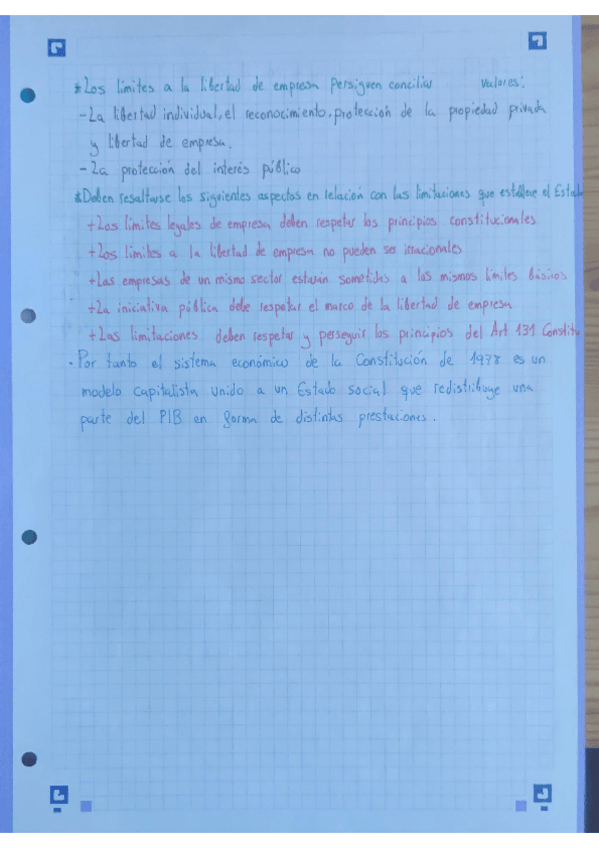 * Los límites a la libertad de empresa persiguen conciliar valores:
- La libertad individual, el reconocimiento, protección de la propiedad privada
y libertad de empresa.
- La protección del interés público
* Deben resaltarse los siguientes aspectos en relación con las limitaciones que establece el Estado
+ Los límites legales de empresa deben respetar los principios constitucionales
+ Los límites a la libertad de empresa no pueden ser irracionales
+ Las empresas de un mismo sector estarán sometidas a los mismos límites básicos
+ La iniciativa pública debe respetar el marco de la libertad de empresa
+ Las limitaciones deben respetar y perseguir los principios del Art 131 Constitu
- Por tanto el sistema económico de la Constitución de 1978 es un
modelo capitalista unido a un Estado social que redistribuye una
parte del PIB en forma de distintas prestaciones.